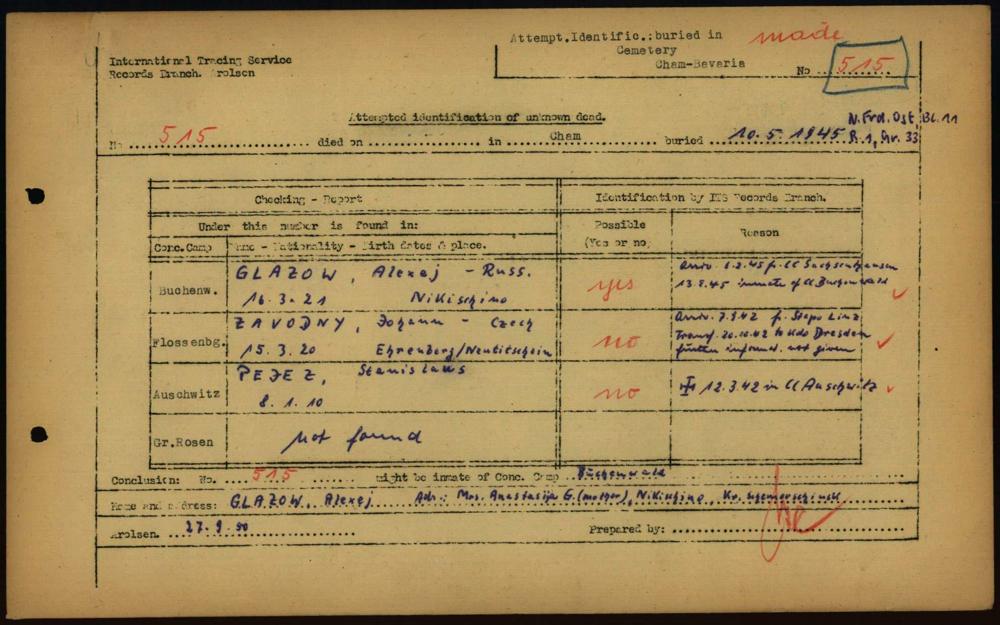 Attempt.Identific.: buried in made
Cemetery
Cham-Bavaria
No ... 515
International Tracing Service
Records Branch. Arolsen
Attempted identification of unknown dead.
N. Frd. Ost Bl. 11
No 515 died on ... in Cham buried 10.5.1945 R. 1, Gr. 33
Checking - Report
Identification by ITS Records Branch.
Under this number is found in:
Possible (Yes or no)
Reason
Conc.Camp
Name - Nationality - Birth dates & place.
Buchenw.
GLAZOW, Alexej - Russ.
16.3.21 Nikischino
yes
Arriv. 6.2.45 f. CC Sachsenhausen
13.2.45 inmate of CC Buchenwald
Flossenbg.
ZAVODNY, Johann - Czech
15.3.20 Ehrenberg/Neutitschein
no
Arriv. 7.9.42 f. Stapo Linz
Transf. 20.10.42 to Kdo Dresden
further informat. not given
Auschwitz
PEJEZ, Stanislaus
8.1.10
no
12.3.42 in CC Auschwitz
Gr.Rosen
Not found
Conclusion: No. 515 might be inmate of Conc. Camp Buchenwald
Name and address: GLAZOW, Alexej Adr.: Mrs. Anastasija G. (mother), Nikischino, Kr.
Arolsen. 27.9.50
Prepared by: